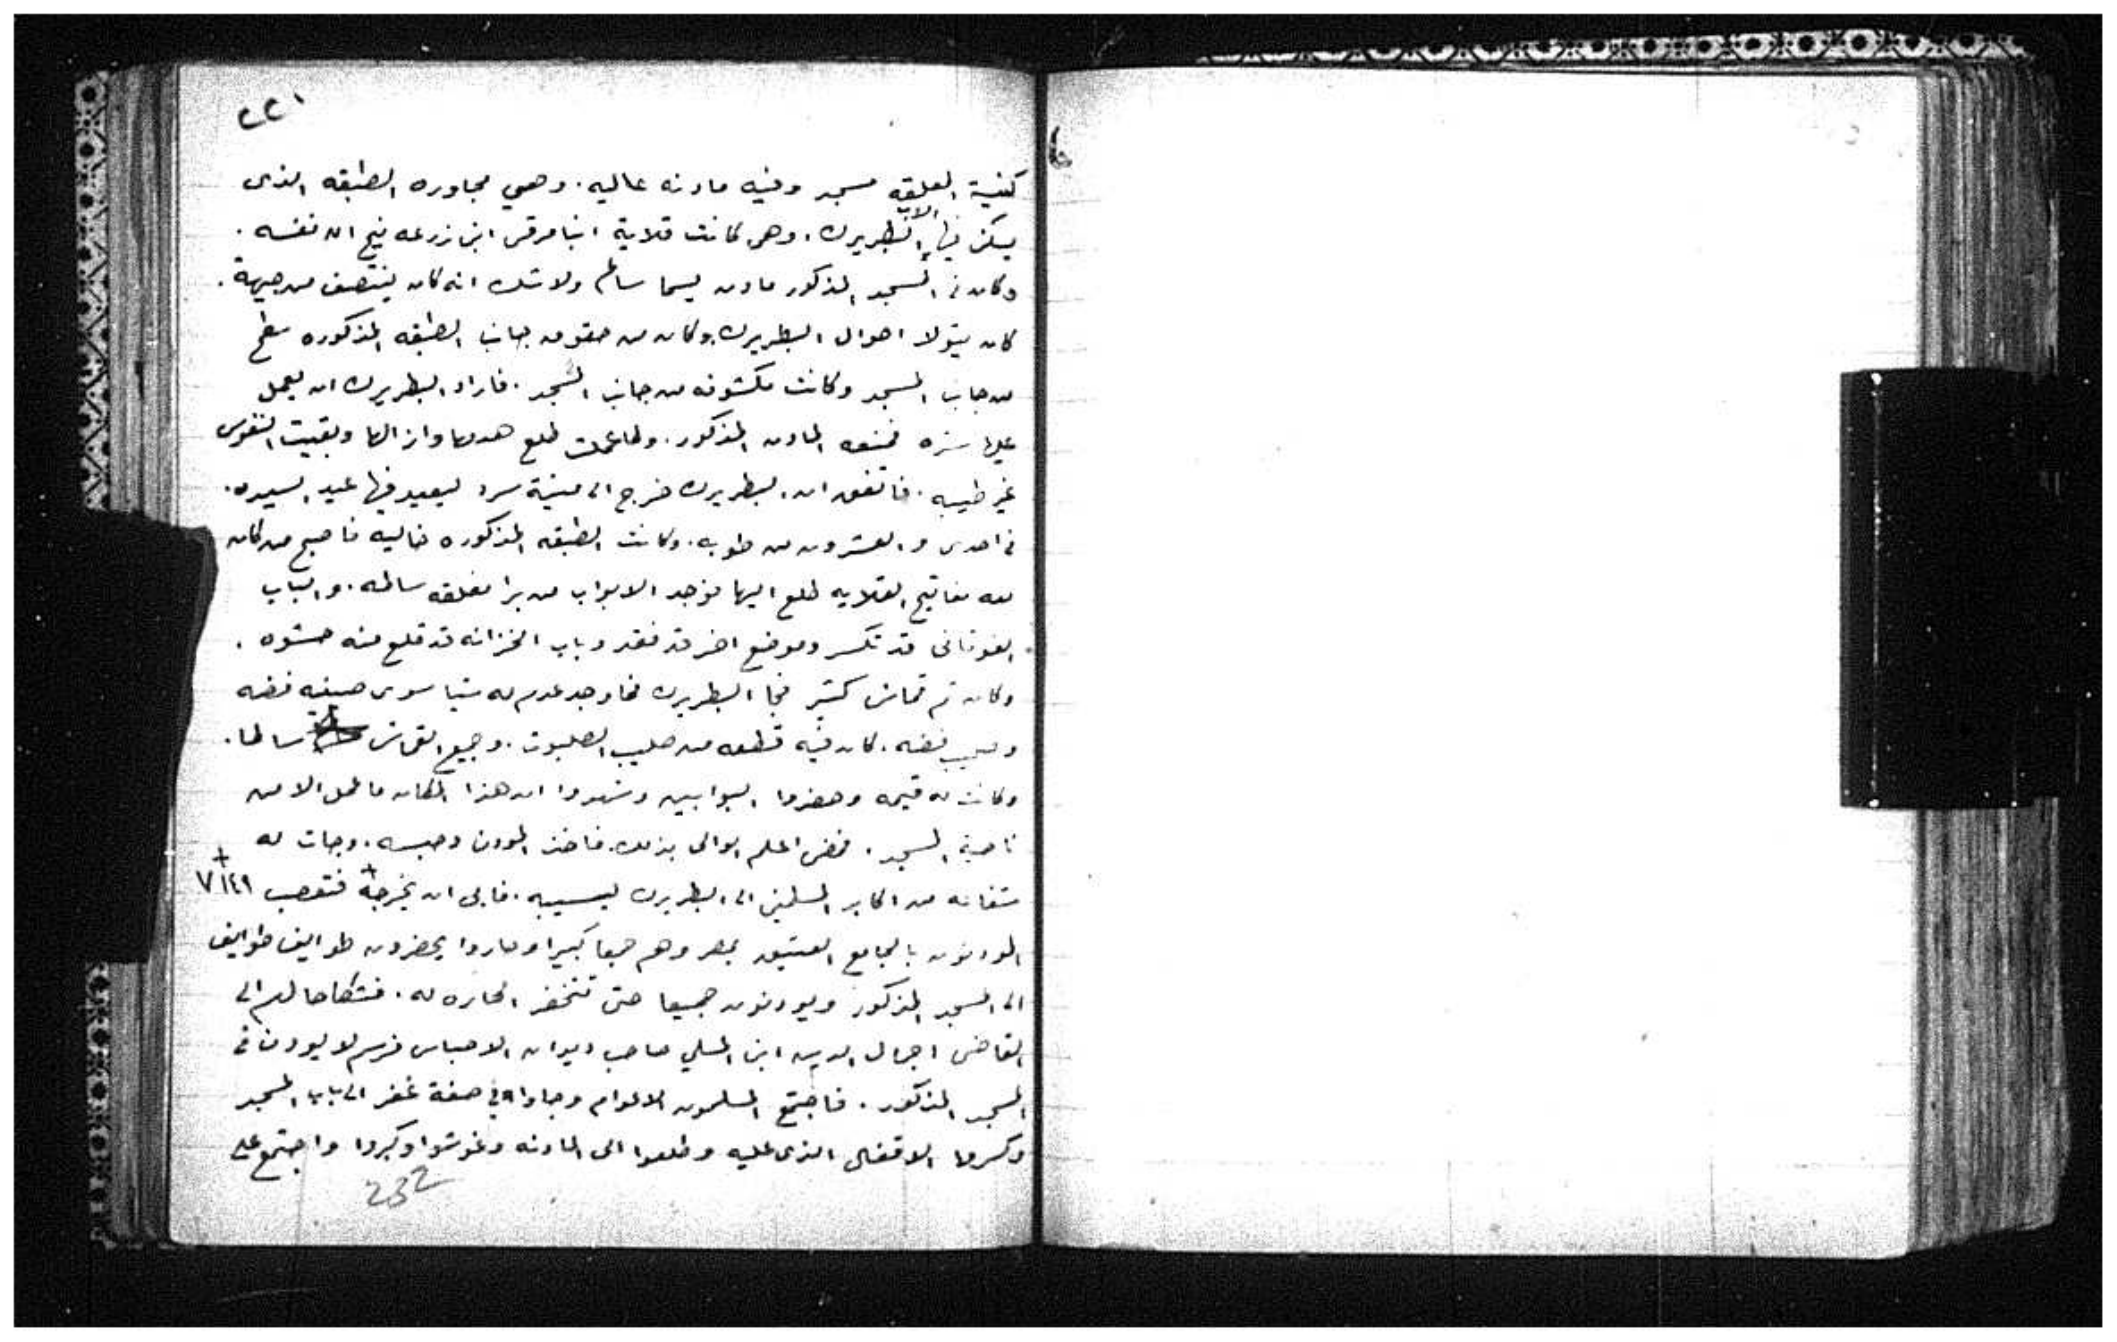 ٢٢١
كنيسة المعلقه مسجد وفيه مادنه عاليه. وهي مجاوره الطبقه الذى
يسكن فيها الاب البطريرك. وهى كانت قلاية انبا مرقس ابن زرعه نيح الله نفسه.
وكان فى المسجد المذكور مادن يسما سالم ولا شك انه كان ينتصف من جهة.
كان يتولا احوال البطريرك وكان من حقوق جانب الطبقه المذكوره سطح
من جانب المسجد وكانت مكشوفه من جانب المسجد. فاراد البطريرك ان يعمل
عليها ستره فمنعه المادن المذكور. ولما عملت طلع هدمها وازالها وبقيت النفوس
غير طيبه. فاتفق ان البطريرك خرج الى منية سرد ليعيد فيها عيد السيده.
فى احدى والعشرون من طوبه. وكانت الطبقه المذكوره خاليه فاصبح من كان
معه مفاتيح القلايه طلع اليها فوجد الابواب من برا مغلقه سالمه. والباب
الفوقانى قد تكسر وموضع اخر قد فقد وباب الخزانه قد قلع منه حشوه.
وكان تم قماش كتير فجا البطريرك فما وجد عدم له شيا سوى صينيه فضه
وصليب فضه. كان فيه قطعه من صليب الصلبوت. وجميع القماش سالما.
وكانت له قيمه وحضروا البوابين وشهدوا ان هذا المكان ما عمل الا من
ناحية المسجد. فمضى اعلم الوالى بذلك فاخذ المودن وحبسه. وجات له
شفاعه من اكابر المسلمين الى البطريرك ليسيبه. فابى ان يخرجه فتعصب ٧١٤٩
المودنون بالجامع العتيق بمصر وهم جمعا كبيرا وصاروا يحضرون طوايف طوايف
الى المسجد المذكور ويودنون جميعا حتى تنحفز الحاره له. فشكا حالهم الى
القاضى اجمال الدين ابن المسلي صاحب ديوان الاحباس فرسم لا يودن فى
المسجد المذكور. فاجتمع المسلمون الالعوام وجاوا فى صفة غفر الى باب المسجد
وكسروا الاقفال الذى عليه وطلعوا الى المادنه وغوشوا وكبروا واجتمع على
232